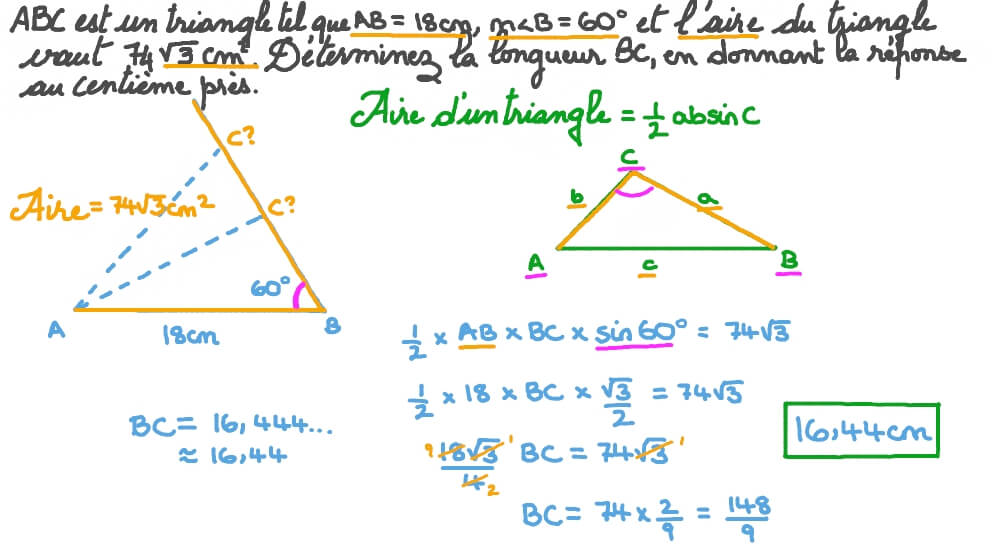 ABC est un triangle tel que AB = 18cm, m<B = 60° et l'aire du triangle
vaut 74√3 cm². Déterminez la longueur BC, en donnant la réponse
au centième près.
Aire d'un triangle = 1/2 ab sin C
C?
C?
Aire = 74√3 cm²
60°
A
18cm
B
C
b
a
A
c
B
1/2 × AB × BC × sin 60° = 74√3
1/2 × 18 × BC × √3/2 = 74√3
9 18√3 1 / 4 2 BC = 74√3 1
BC = 74 × 2/9 = 148/9
BC = 16,444...
≈ 16,44
16,44cm